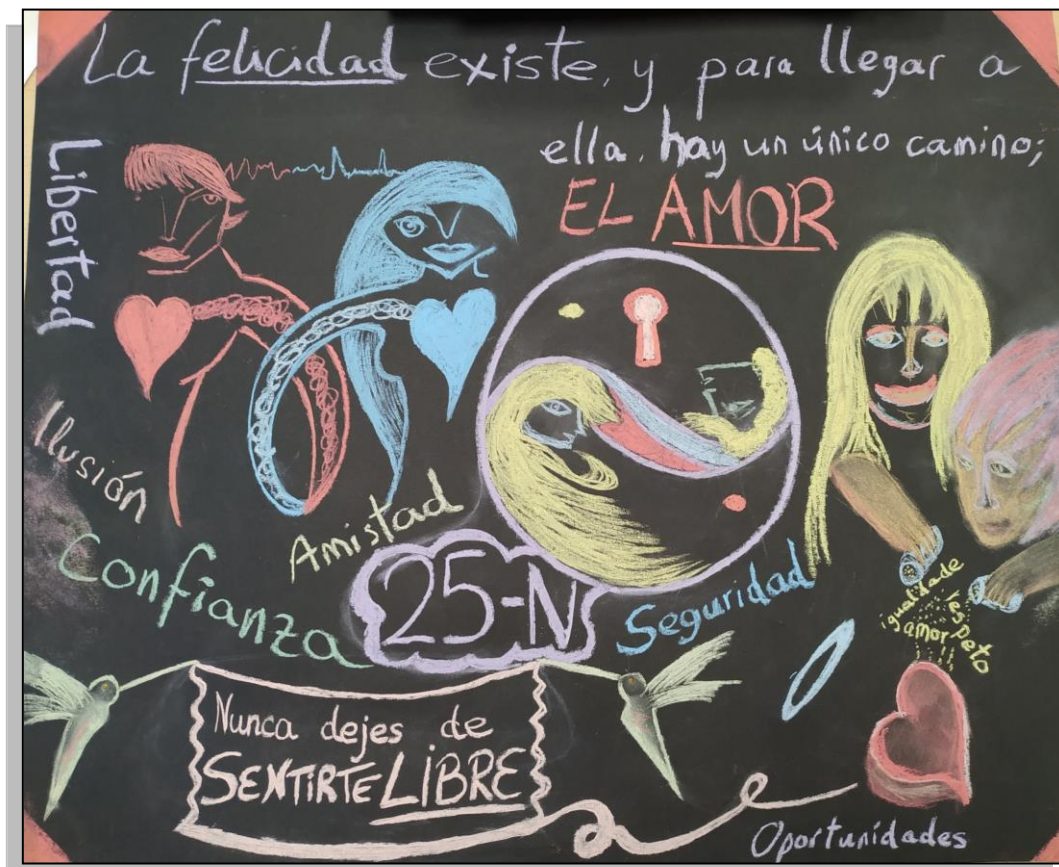 La felicidad existe, y para llegar a
ella, hay un único camino;
EL AMOR
Libertad
Ilusión
Confianza
Amistad
25-N
Seguridad
igualdade
respeto
amor
Nunca dejes de
SENTIRTE LIBRE
Oportunidades